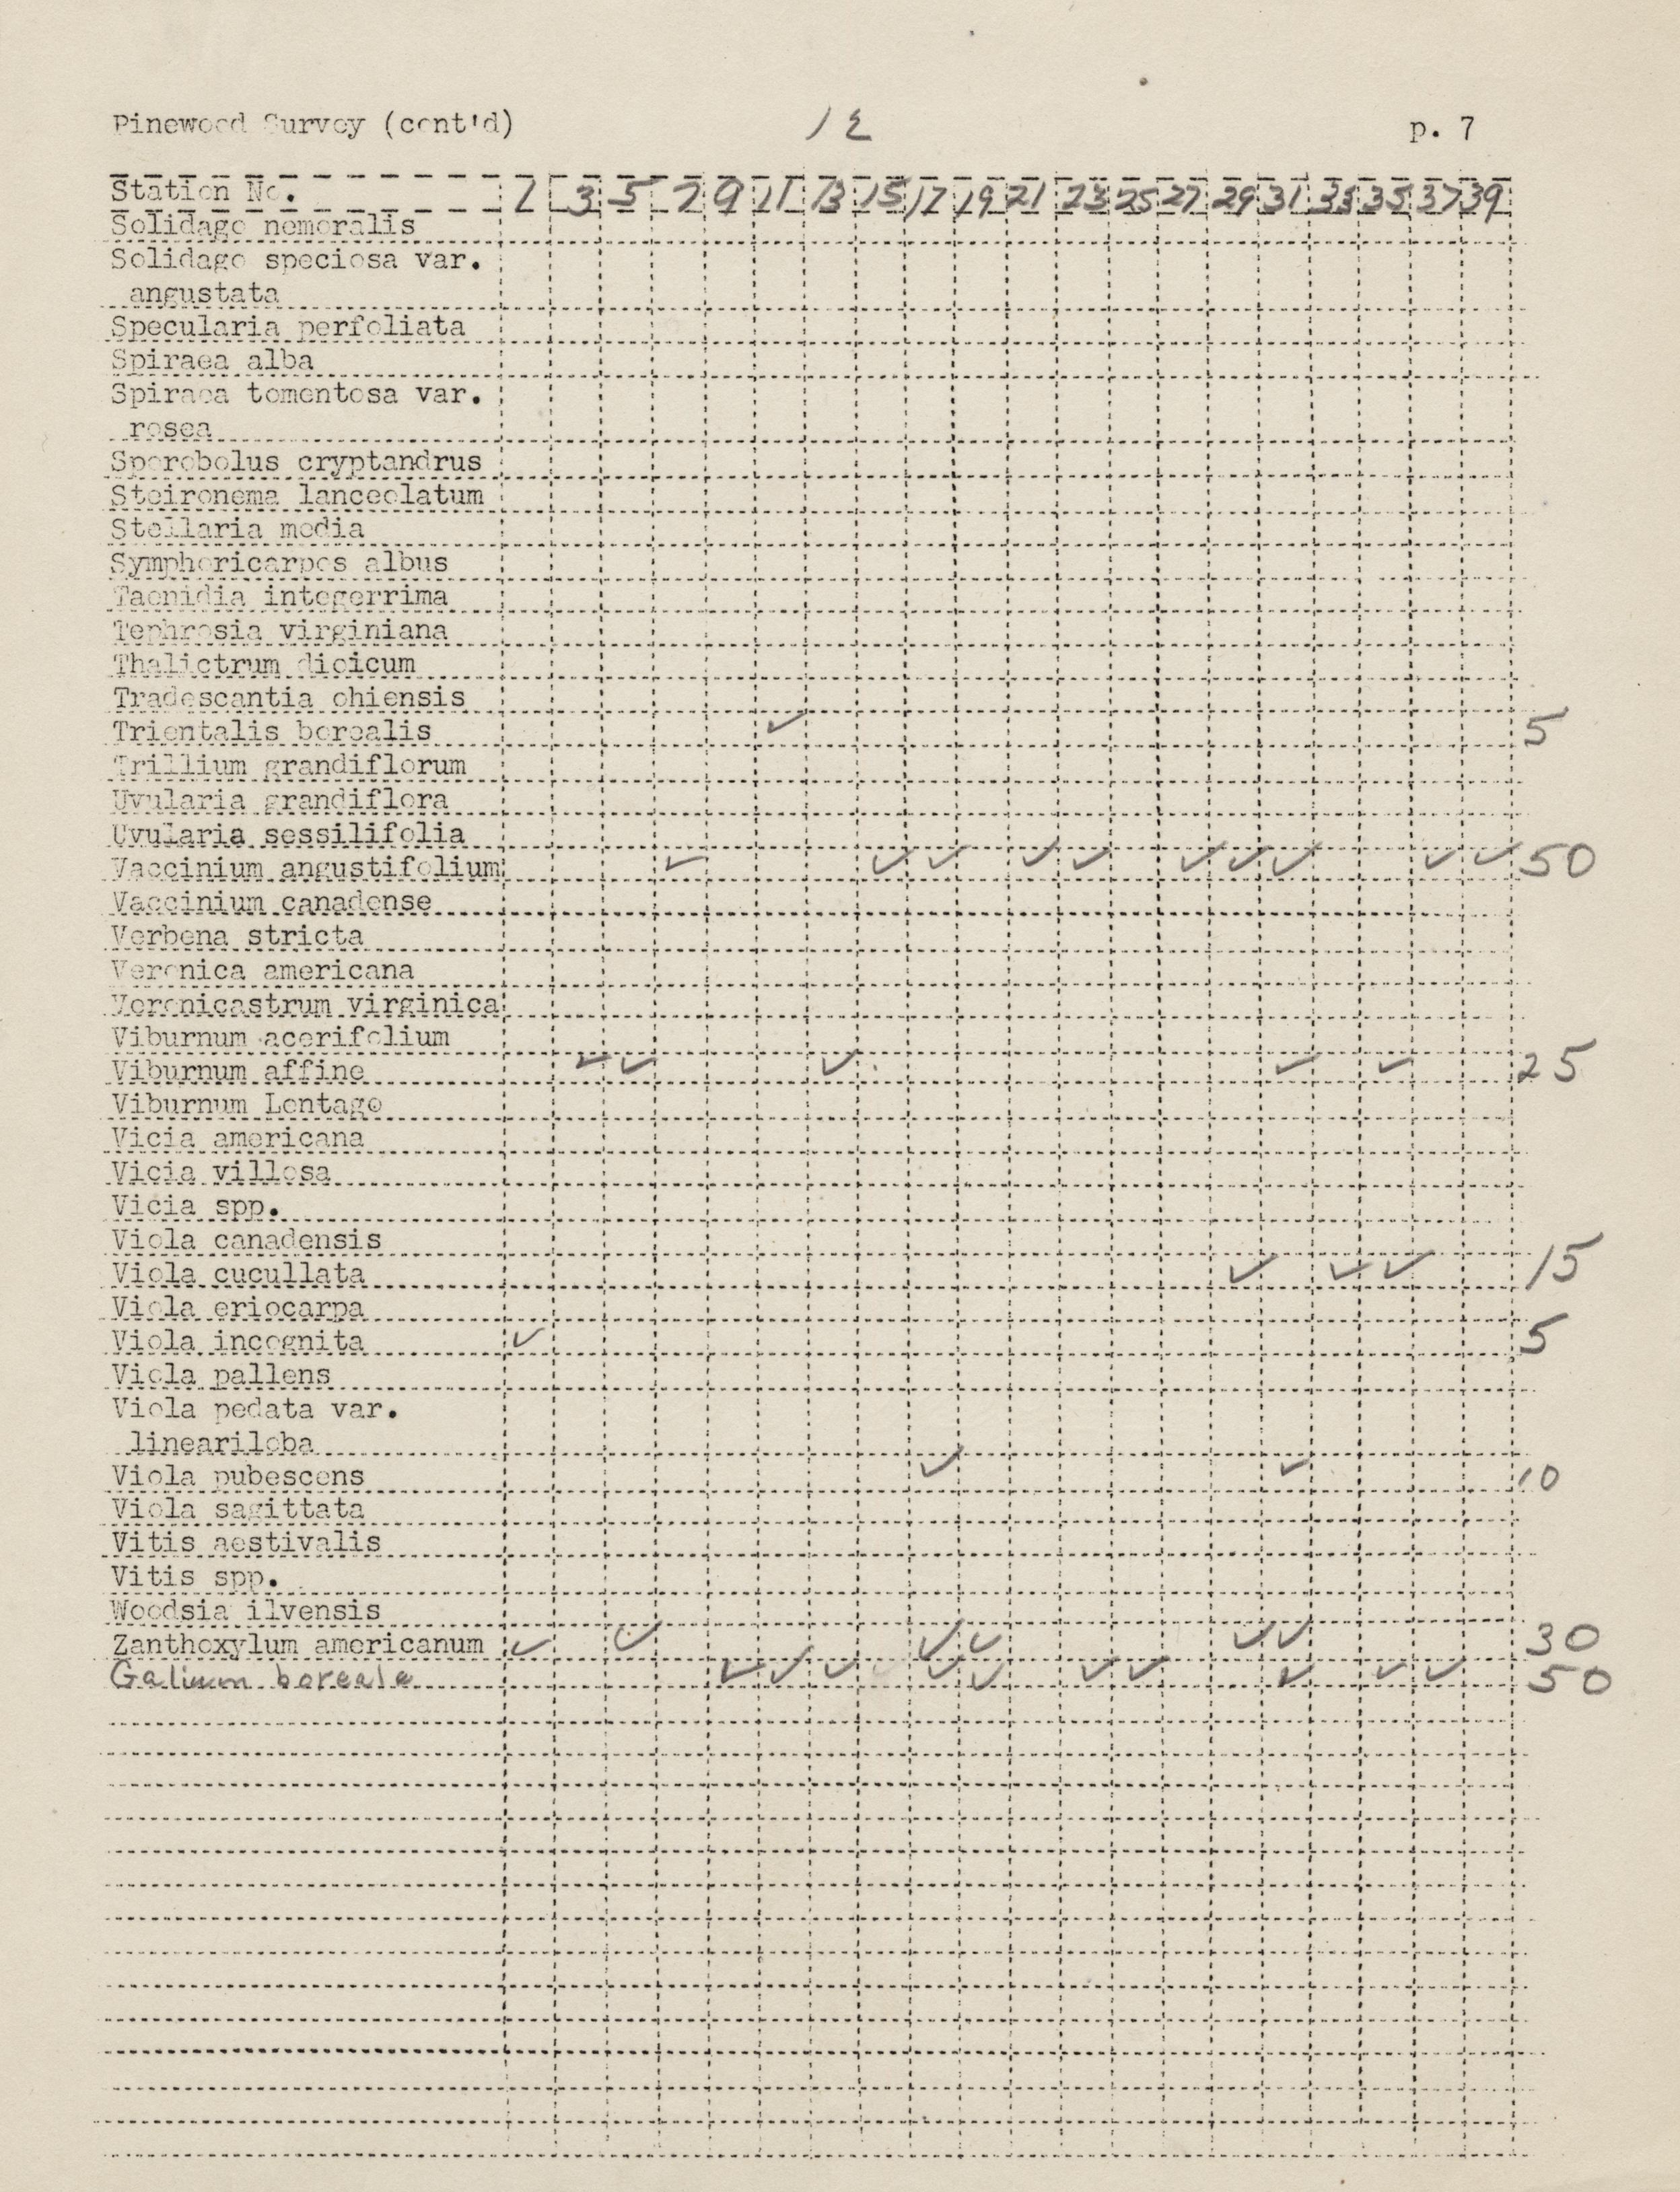 Pinewood Survey (cont'd) 12 p. 7
Station No. 1 3 5 7 9 11 13 15 17 19 21 23 25 27 29 31 33 35 37 39
Solidago nemoralis
Solidago speciosa var.
angustata
Specularia perfoliata
Spiraea alba
Spiraea tomentosa var.
rosea
Sporobolus cryptandrus
Steironema lanceolatum
Stellaria media
Symphoricarpos albus
Taenidia integerrima
Tephrosia virginiana
Thalictrum dioicum
Tradescantia ohiensis
Trientalis borealis ✓ 5
Trillium grandiflorum
Uvularia grandiflora
Uvularia sessilifolia
Vaccinium angustifolium ✓ ✓ ✓ ✓ ✓ ✓ ✓ ✓ ✓ ✓ 50
Vaccinium canadense
Verbena stricta
Veronica americana
Veronicastrum virginica
Viburnum acerifolium
Viburnum affine ✓ ✓ ✓ ✓ ✓ 25
Viburnum Lentago
Vicia americana
Vicia villosa
Vicia spp.
Viola canadensis
Viola cucullata ✓ ✓ ✓ 15
Viola eriocarpa
Viola incognita ✓ 5
Viola pallens
Viola pedata var.
lineariloba
Viola pubescens ✓ ✓ 10
Viola sagittata
Vitis aestivalis
Vitis spp.
Woodsia ilvensis
Zanthoxylum americanum ✓ ✓ ✓ ✓ ✓ ✓ 30
Galium boreale ✓ ✓ ✓ ✓ ✓ ✓ ✓ ✓ ✓ ✓ 50